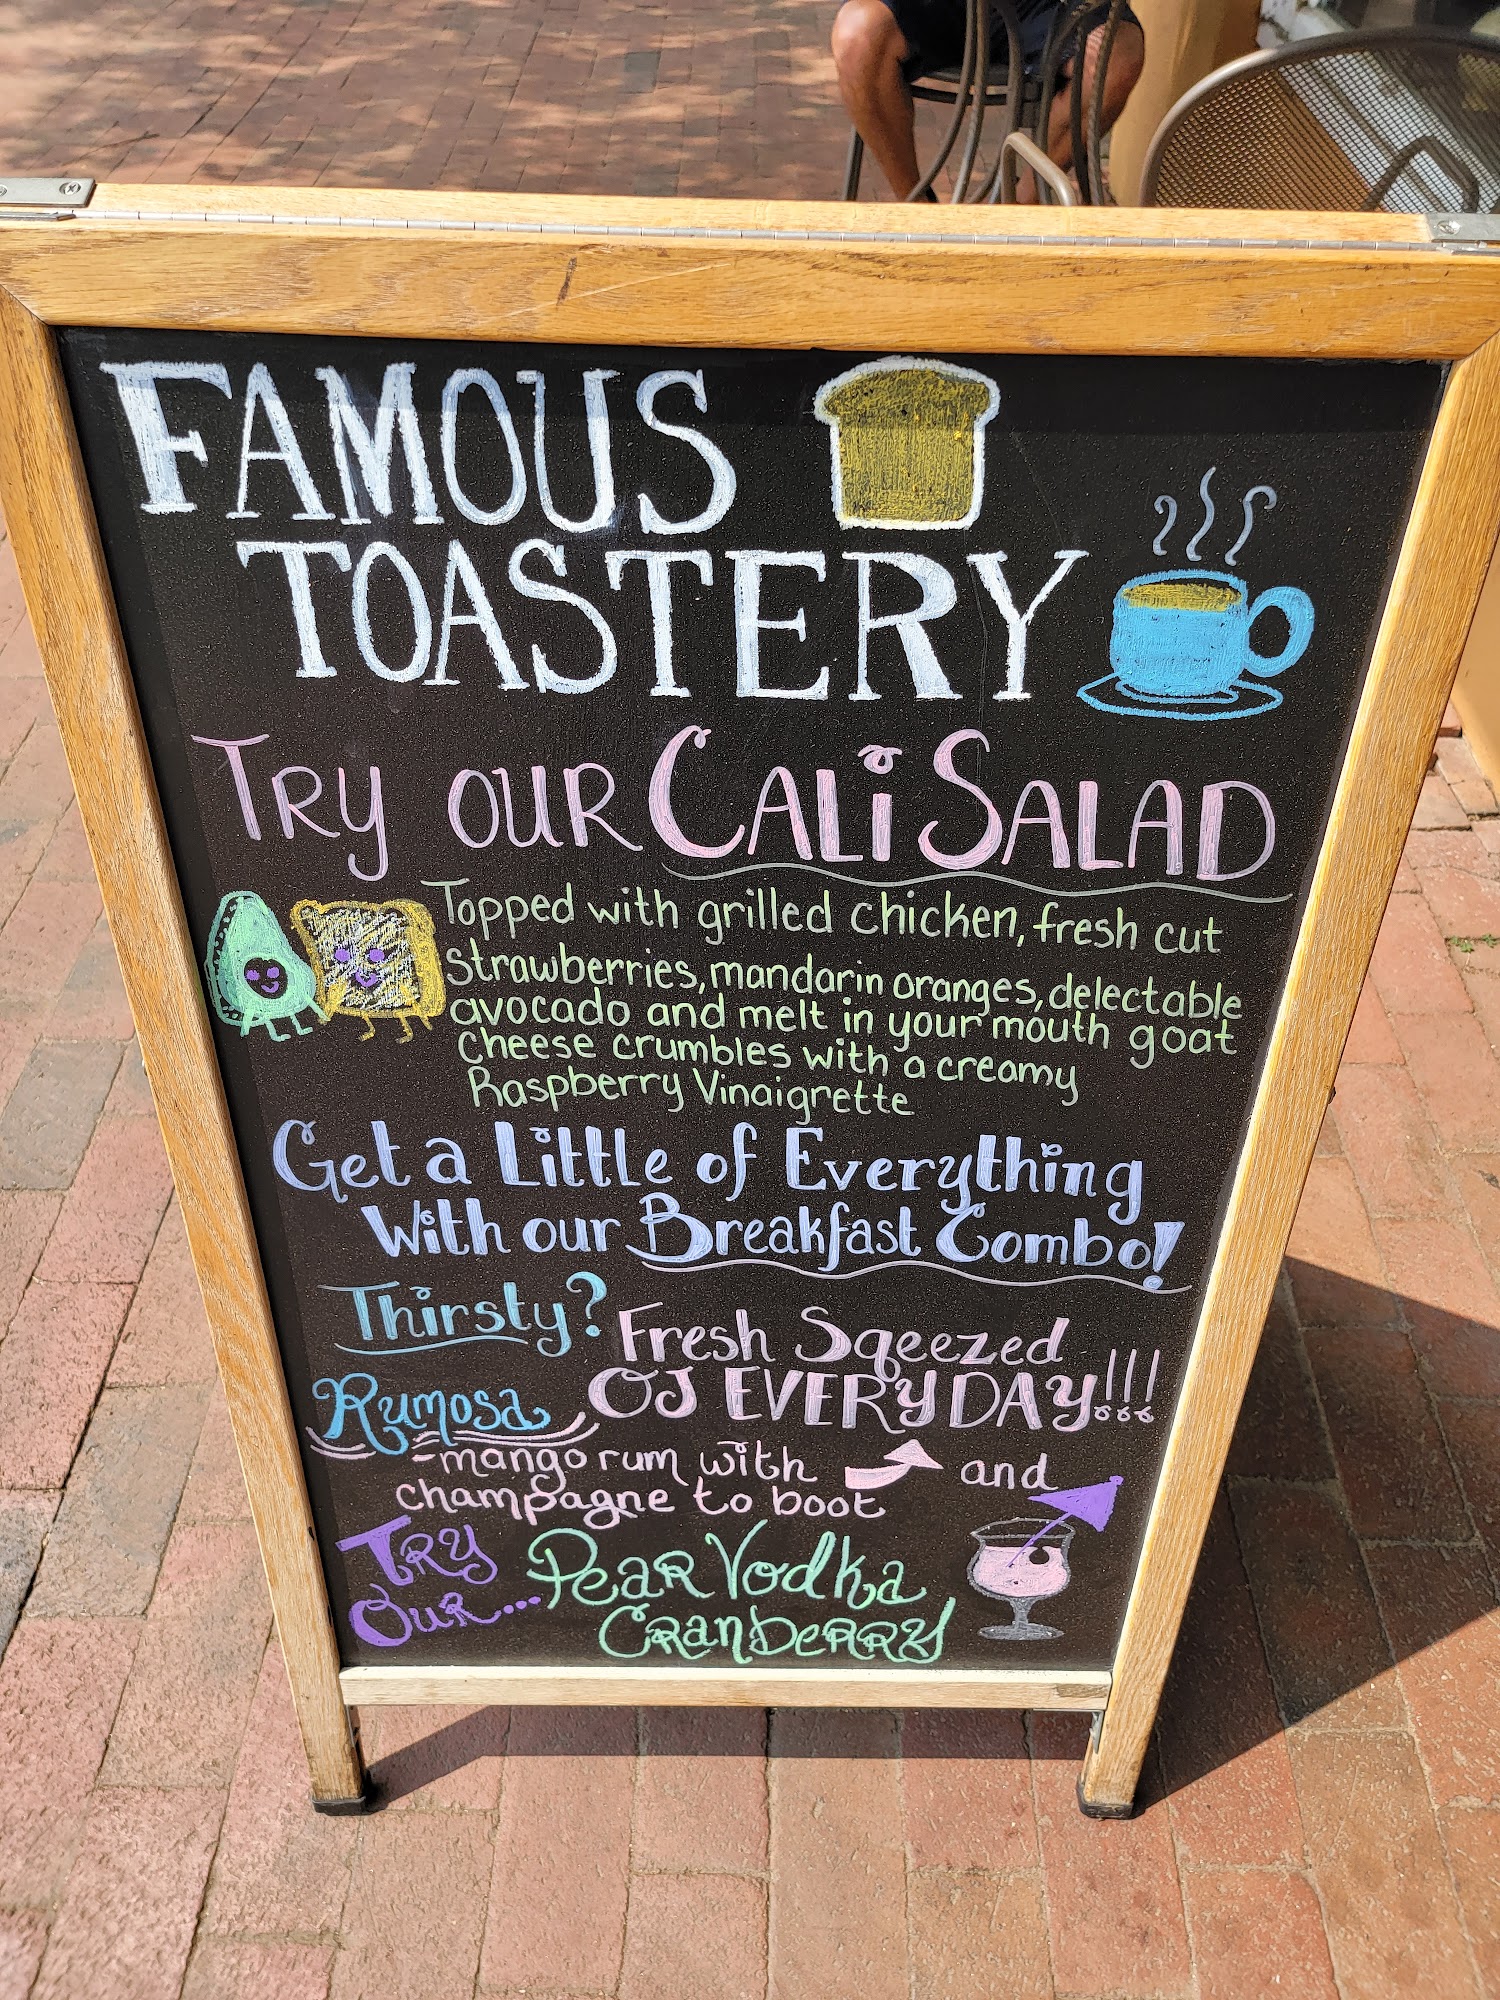 FAMOUS
TOASTERY
TRY OUR CALi SALAD
Topped with grilled chicken, fresh cut
strawberries, mandarin oranges, delectable
avocado and melt in your mouth goat
cheese crumbles with a creamy
Raspberry Vinaigrette
Get a Little of Everything
With our Breakfast Combo!
Thirsty? Fresh Sqeezed
OJ EVERYDAY!!!
Rumosa
-mango rum with and
champagne to boot
TRY
OUR... Pear Vodka
Cranberry